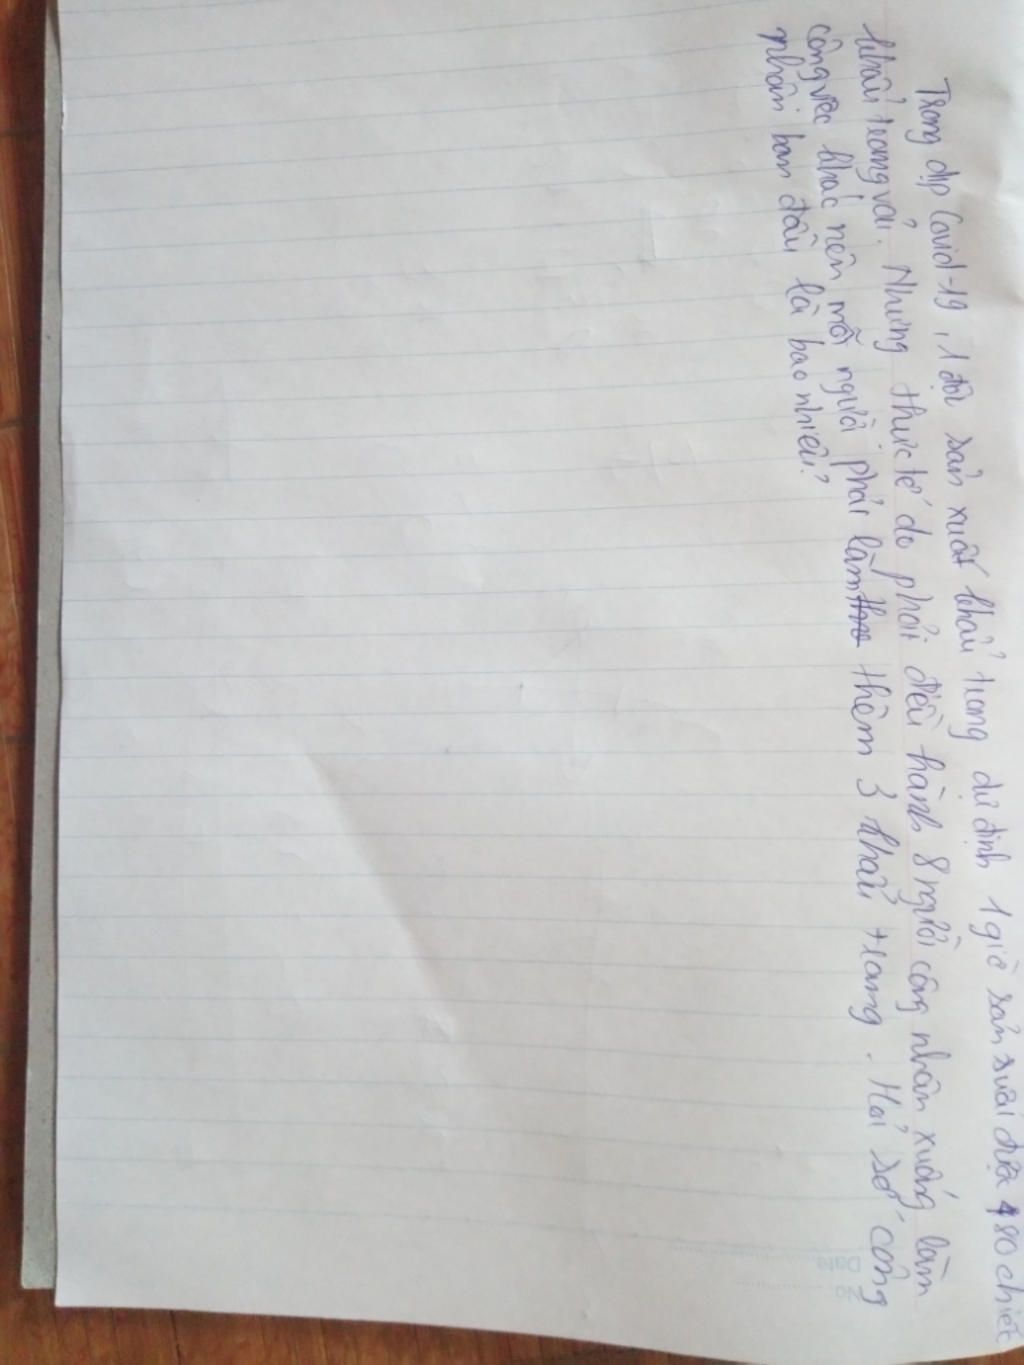 Trong dịp Covid-19, 1 đội sản xuất khẩu trang dự định 1 giờ sản xuất được 480 chiếc
khẩu trang vải. Nhưng thực tế do phải điều hành 8 người công nhân xuống làm
công việc khác nên mỗi người phải làm thêm 3 khẩu trang. Hỏi số công
nhân ban đầu là bao nhiêu?
No
Date